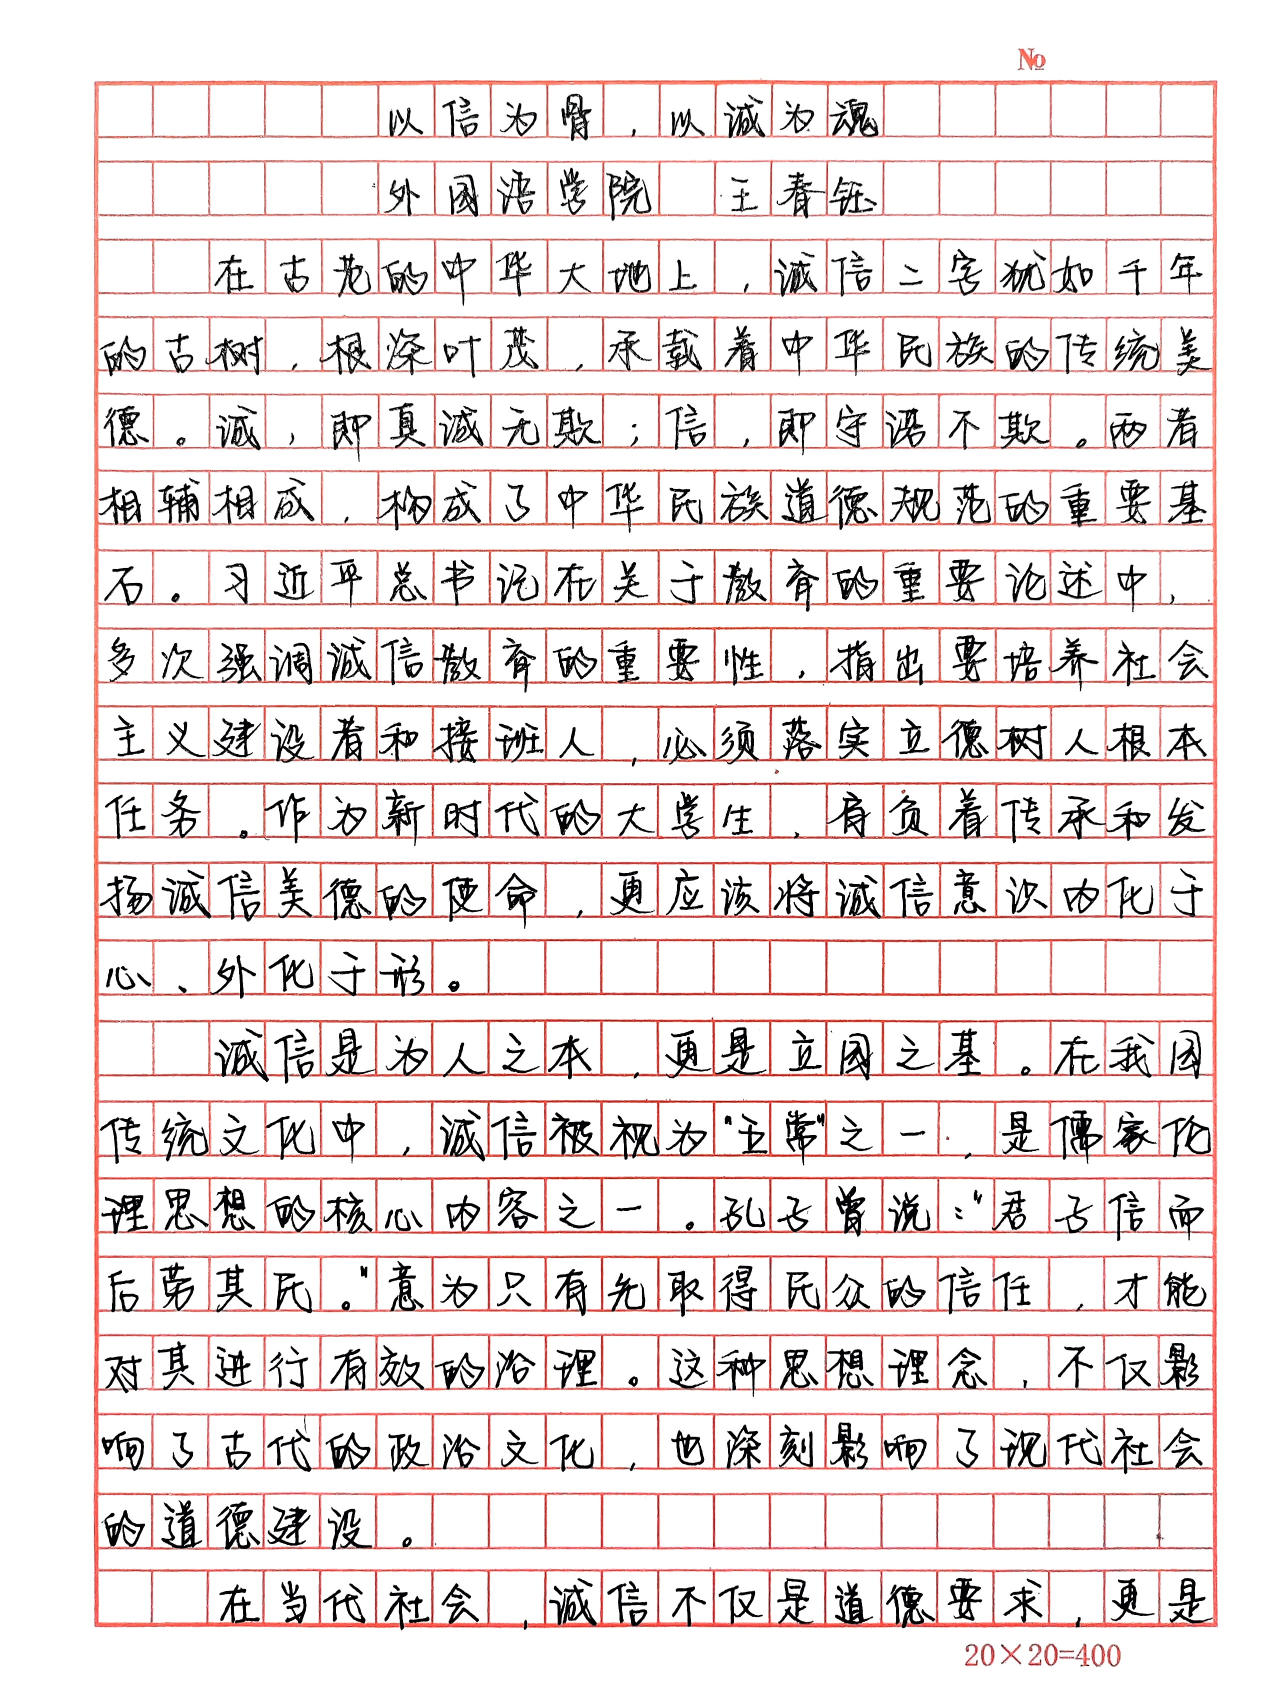 №
以信为骨，以诚为魂
外国语学院 王春钰
在古老的中华大地上，诚信二字犹如千年
的古树，根深叶茂，承载着中华民族的传统美
德。诚，即真诚无欺；信，即守诺不欺。两者
相辅相成，构成了中华民族道德规范的重要基
石。习近平总书记在关于教育的重要论述中，
多次强调诚信教育的重要性，指出要培养社会
主义建设者和接班人，必须落实立德树人根本
任务。作为新时代的大学生，肩负着传承和发
扬诚信美德的使命，更应该将诚信意识内化于
心、外化于形。
诚信是为人之本，更是立国之基。在我国
传统文化中，诚信被视为“五常”之一，是儒家伦
理思想的核心内容之一。孔子曾说：“君子信而
后劳其民。”意为只有先取得民众的信任，才能
对其进行有效的治理。这种思想理念，不仅影
响了古代的政治文化，也深刻影响了现代社会
的道德建设。
在当代社会，诚信不仅是道德要求，更是
20×20=400